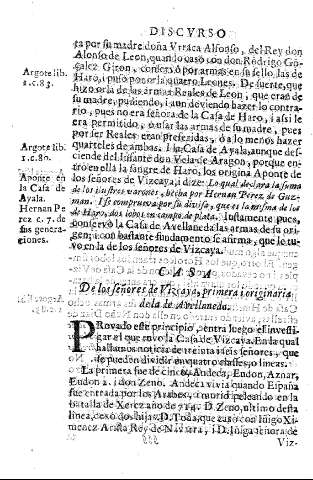 DISCVRSO
ra por su madre doña Vrraca Alfonso, del Rey don
Alonso de Leon, quando casò con don Rodrigo Gō-
çalez Giron, conservò por armas en su sello, las de
Haro, i puso por orla quatro Leones. De suerte, que
hizo orla de las armas Reales de Leon, que eran de
su madre, pudiendo, i aun deviendo hazer lo contra-
rio, pues no era señora de la Casa de Haro, i assi le
era permitido, o usar las armas de su madre, pues
por ser Reales eran preferidas, o a lo menos hazer
quarteles de ambas. I la Casa de Ayala, aunque des-
ciende del Infante don Vela de Aragon, porque en-
trò en ella la sangre de Haro, los origina Aponte de
los señores de Vizcaya, i dize: Lo qual declara la suma
de los ilustres varones, hecha por Hernan Perez de Guz-
man. I se comprueva por su divisa, que es la misma de la
de Haro, dos lobos en campo de plata. Iustamente pues,
conservò la Casa de Avellaneda las armas de su ori-
gen; i con bastante fundamento se afirma, que le tu-
vo en la de los señores de Vizcaya.
Argote lib.
1. c. 83.
Argote lib.
1. c. 80.
Aponte en
la Casa de
Ayala.
Hernan Pe-
rez c. 7. de
sus genera-
ciones.
CASA
De los señores de Vizcaya, primera i originaria
de la de Avellaneda.
PRovado este principio, entra luego el investi-
gar el que tuvo la Casa de Vizcaya. En la qual
hallamos noticia de treinta i seis señores, que
se pueden dividir en quatro classes, o lineas.
La primera fue de cinco, Andeca, Eudon, Aznar,
Eudon 2. i don Zeno. Andeca vivia quando España
fue entrada por los Arabes, i murio peleando en la
batalla de Xerez año de 714. D. Zeno, ultimo desta
linea, dexò dos hijas, D. Toda, que casò con Iñigo Xi-
menez Arista Rey de Navarra, i D. Iñiga señora de
Viz-